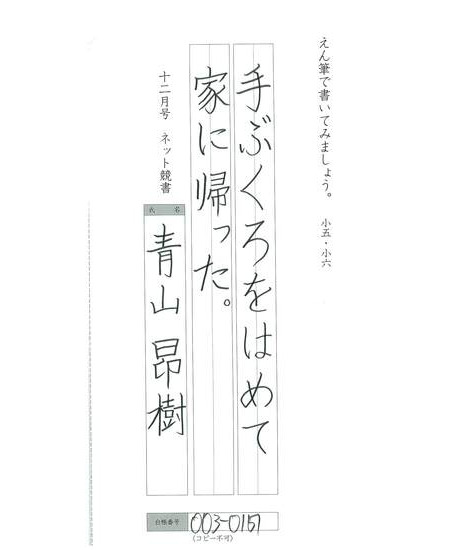 えん筆で書いてみましょう。 小五・小六
手ぶくろをはめて
家に帰った。
十二月号 ネット競書
氏名
青山昂樹
台帳番号 003-0151
(コピー不可)